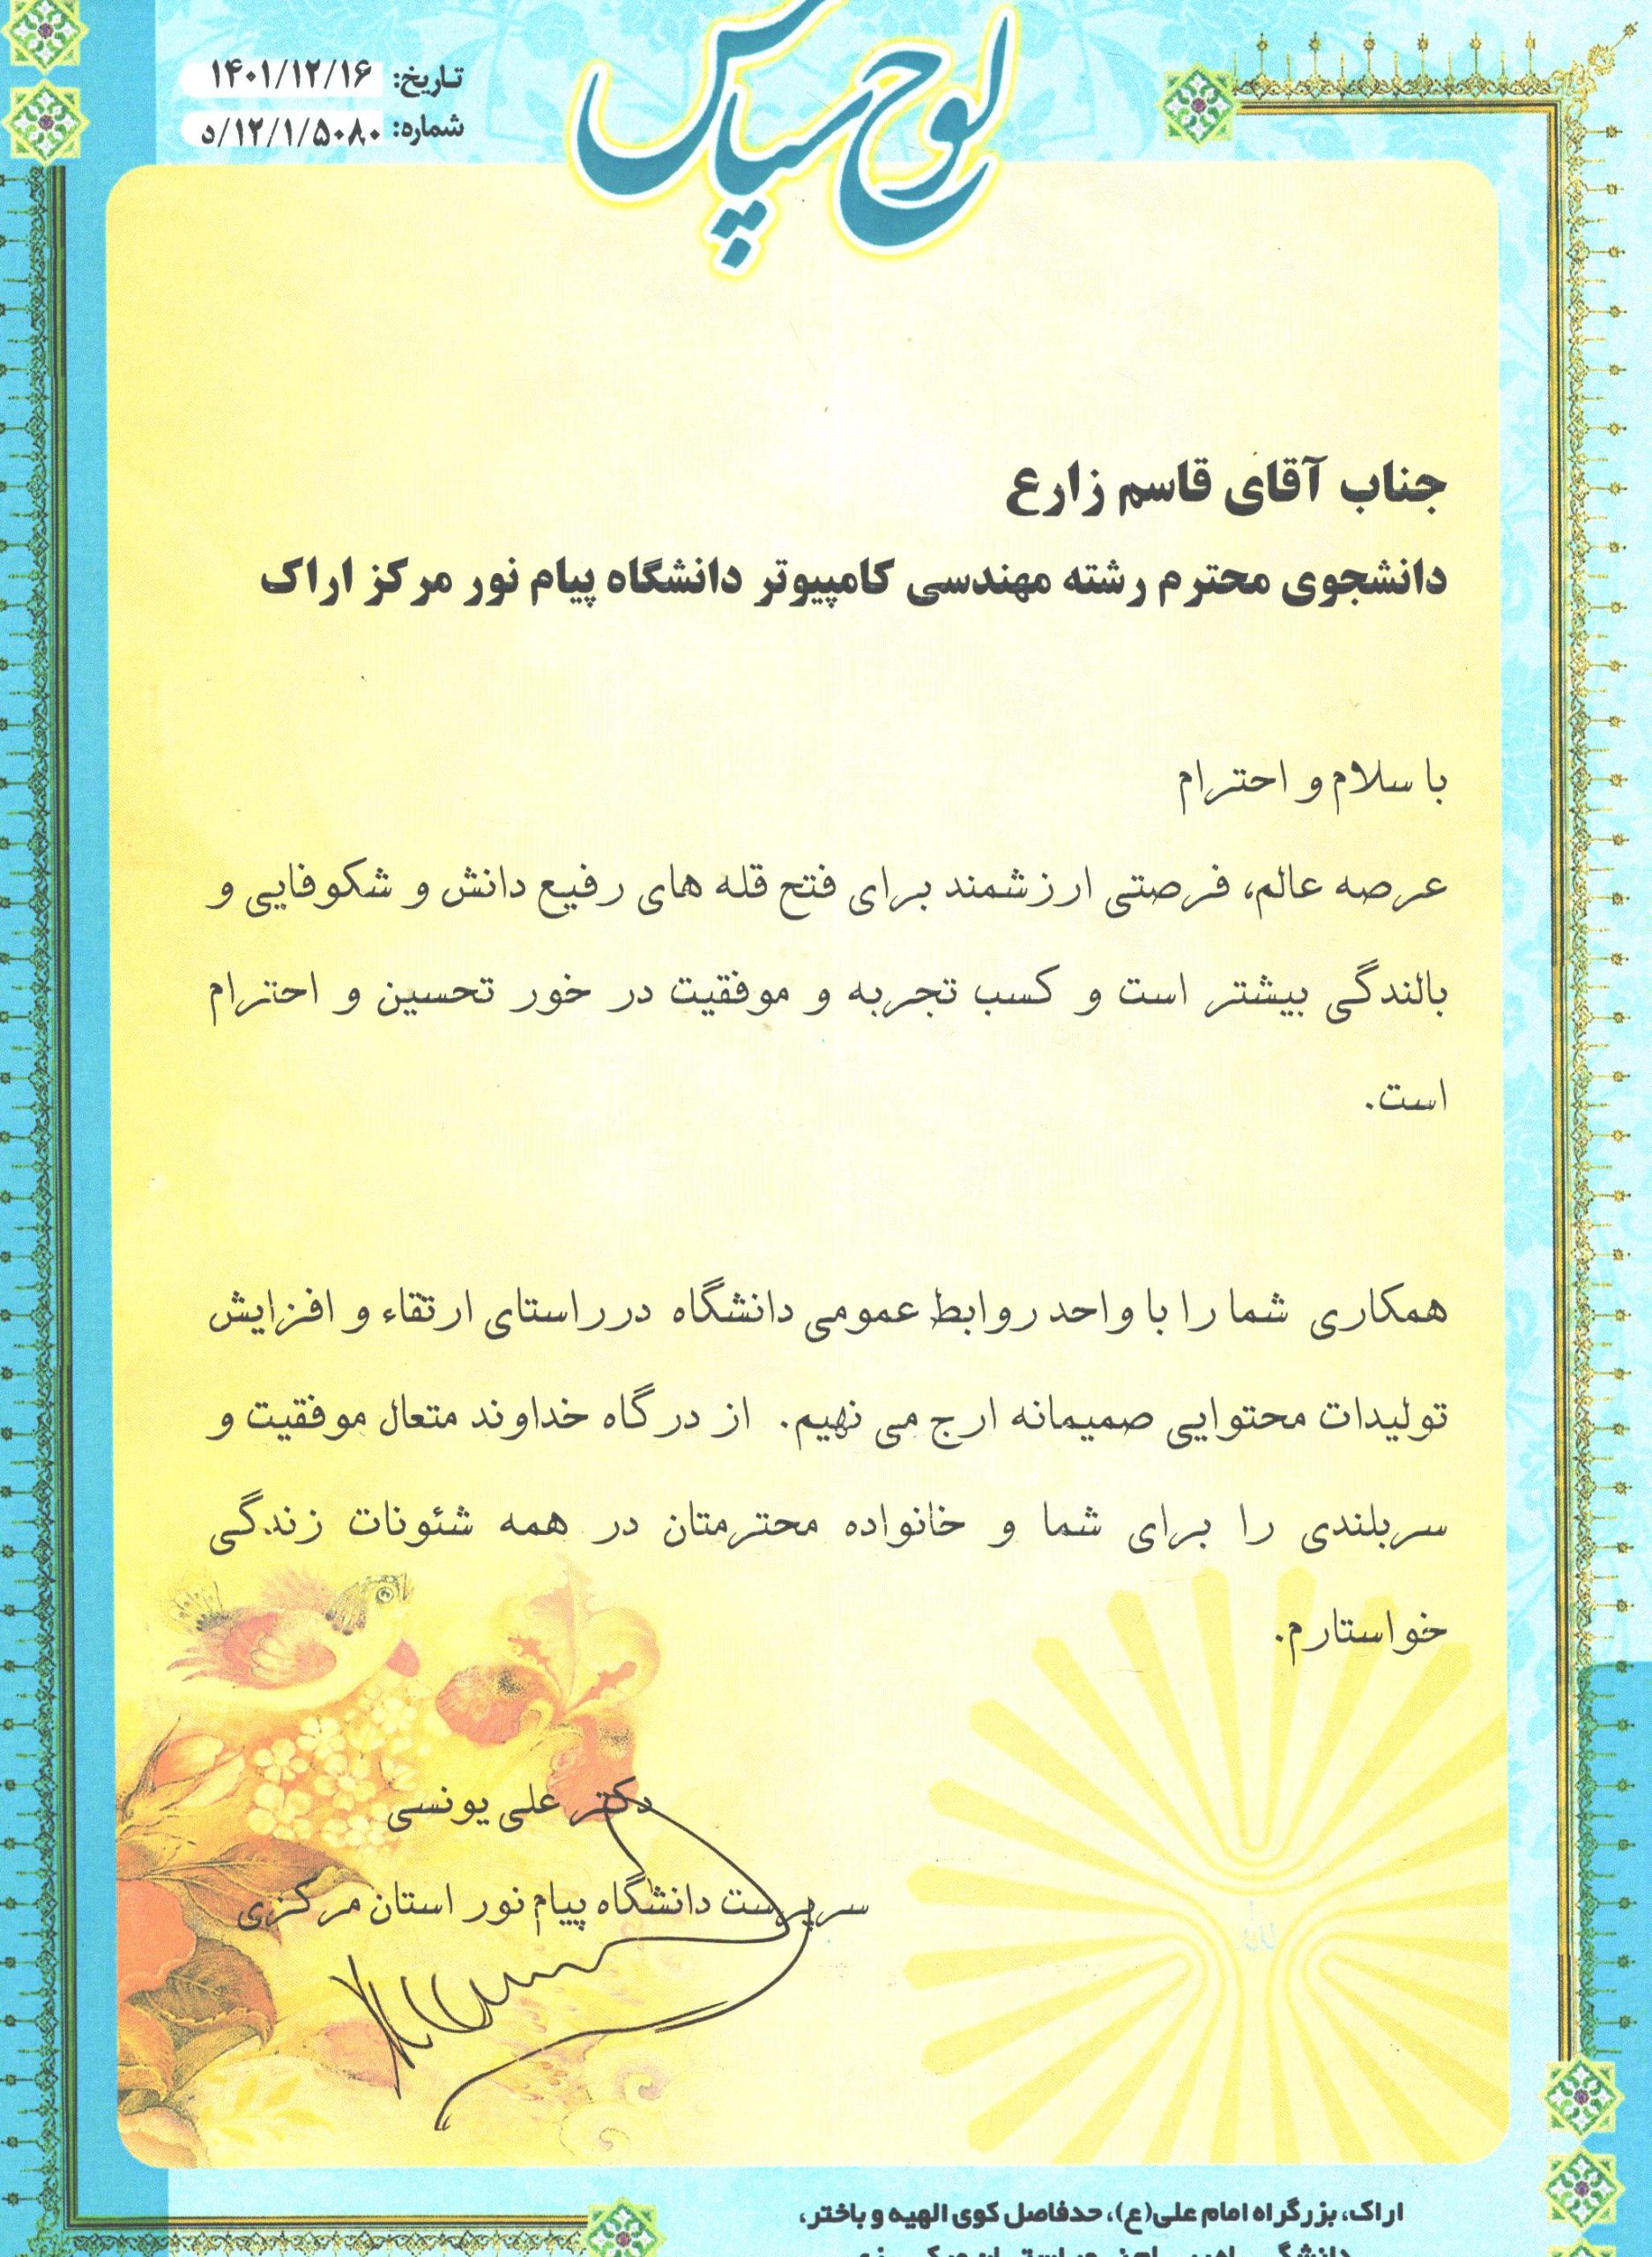 لوح سپاس
تاریخ: ۱۴۰۱/۱۲/۱۶
شماره: ۵۰۸۰/د/۱۲/۱
جناب آقای قاسم زارع
دانشجوی محترم رشته مهندسی کامپیوتر دانشگاه پیام نور مرکز اراک
با سلام و احترام
عرصه عالم، فرصتی ارزشمند برای فتح قله های رفیع دانش و شکوفایی و
بالندگی بیشتر است و کسب تجربه و موفقیت در خور تحسین و احترام
است.
همکاری شما را با واحد روابط عمومی دانشگاه در راستای ارتقاء و افزایش
تولیدات محتوایی صمیمانه ارج می نهیم. از درگاه خداوند متعال موفقیت و
سربلندی را برای شما و خانواده محترمتان در همه شئونات زندگی
خواستارم.
دکتر علی یونسی
سرپرست دانشگاه پیام نور استان مرکزی
اراک، بزرگراه امام علی(ع)، حدفاصل کوی الهیه و باختر،